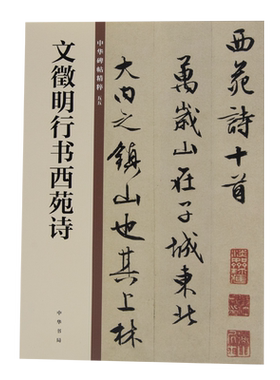 西苑詩十首
萬歲山在子城東北
大内之鎮山也其上林
中华碑帖精粹
文徵明行书西苑诗
中华书局